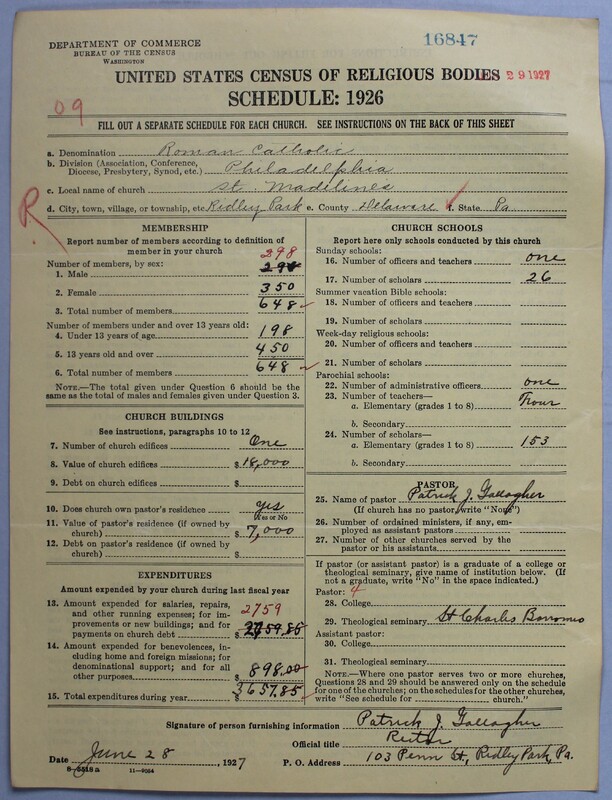 16847
DEPARTMENT OF COMMERCE
BUREAU OF THE CENSUS
WASHINGTON
UNITED STATES CENSUS OF RELIGIOUS BODIES
29 1927
SCHEDULE: 1926
09
FILL OUT A SEPARATE SCHEDULE FOR EACH CHURCH. SEE INSTRUCTIONS ON THE BACK OF THIS SHEET
a. Denomination Roman Catholic
b. Division (Association, Conference,
Diocese, Presbytery, Synod, etc.) Philadelphia
c. Local name of church St. Madilines
d. City, town, village, or township, etc. Ridley Park e. County Delaware f. State Pa.
R
MEMBERSHIP
Report number of members according to definition of
member in your church
298
Number of members, by sex:
1. Male 298
2. Female 350
3. Total number of members 648
Number of members under and over 13 years old:
4. Under 13 years of age 198
5. 13 years old and over 450
6. Total number of members 648
NOTE.—The total given under Question 6 should be the
same as the total of males and females given under Question 3.
CHURCH BUILDINGS
See instructions, paragraphs 10 to 12
7. Number of church edifices One
8. Value of church edifices $ 18,000
9. Debt on church edifices $
10. Does church own pastor's residence yes
Yes or No
11. Value of pastor's residence (if owned by
church) $ 7,000
12. Debt on pastor's residence (if owned by
church) $
EXPENDITURES
Amount expended by your church during last fiscal year
13. Amount expended for salaries, repairs,
and other running expenses; for im-
provements or new buildings; and for
payments on church debt $ 2759.85
2759
14. Amount expended for benevolences,
including home and foreign missions; for
denominational support; and for all
other purposes $ 898.00
15. Total expenditures during year $ 3657.85
CHURCH SCHOOLS
Report here only schools conducted by this church
Sunday schools:
16. Number of officers and teachers one
17. Number of scholars 26
Summer vacation Bible schools:
18. Number of officers and teachers
19. Number of scholars
Week-day religious schools:
20. Number of officers and teachers
21. Number of scholars
Parochial schools:
22. Number of administrative officers one
23. Number of teachers—
a. Elementary (grades 1 to 8) Four
b. Secondary
24. Number of scholars—
a. Elementary (grades 1 to 8) 153
b. Secondary
PASTOR
25. Name of pastor Patrick J. Gallagher
(If church has no pastor, write "None")
26. Number of ordained ministers, if any, em-
ployed as assistant pastors
27. Number of other churches served by the
pastor or his assistants
If pastor (or assistant pastor) is a graduate of a college or
theological seminary, give name of institution below. (If
not a graduate, write "No" in the space indicated.)
Pastor: 4
28. College
29. Theological seminary St Charles Borromeo
Assistant pastor:
30. College
31. Theological seminary
NOTE.—Where one pastor serves two or more churches,
Questions 28 and 29 should be answered only on the schedule
for one of the churches; on the schedules for the other churches,
write "See schedule for church."
Signature of person furnishing information Patrick J. Gallagher
Official title Rector
Date June 28, 1927 P. O. Address 103 Penn St, Ridley Park, Pa.
11-9064